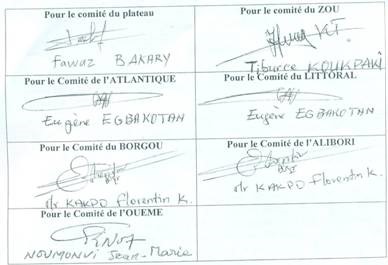 Pour le comité du plateau
Fawaz BAKARY
Pour le comité du ZOU
Tiburce KOUKPAKI
Pour le Comité de l'ATLANTIQUE
Eugène EGBAKOTAN
Pour le Comité du LITTORAL
Eugène EGBAKOTAN
Pour le Comité du BORGOU
Mr KAKPO Florentin K.
Pour le Comité de l'ALIBORI
Mr KAKPO Florentin K.
Pour le Comité de l'OUEME
NOUMONVI Jean-Marie